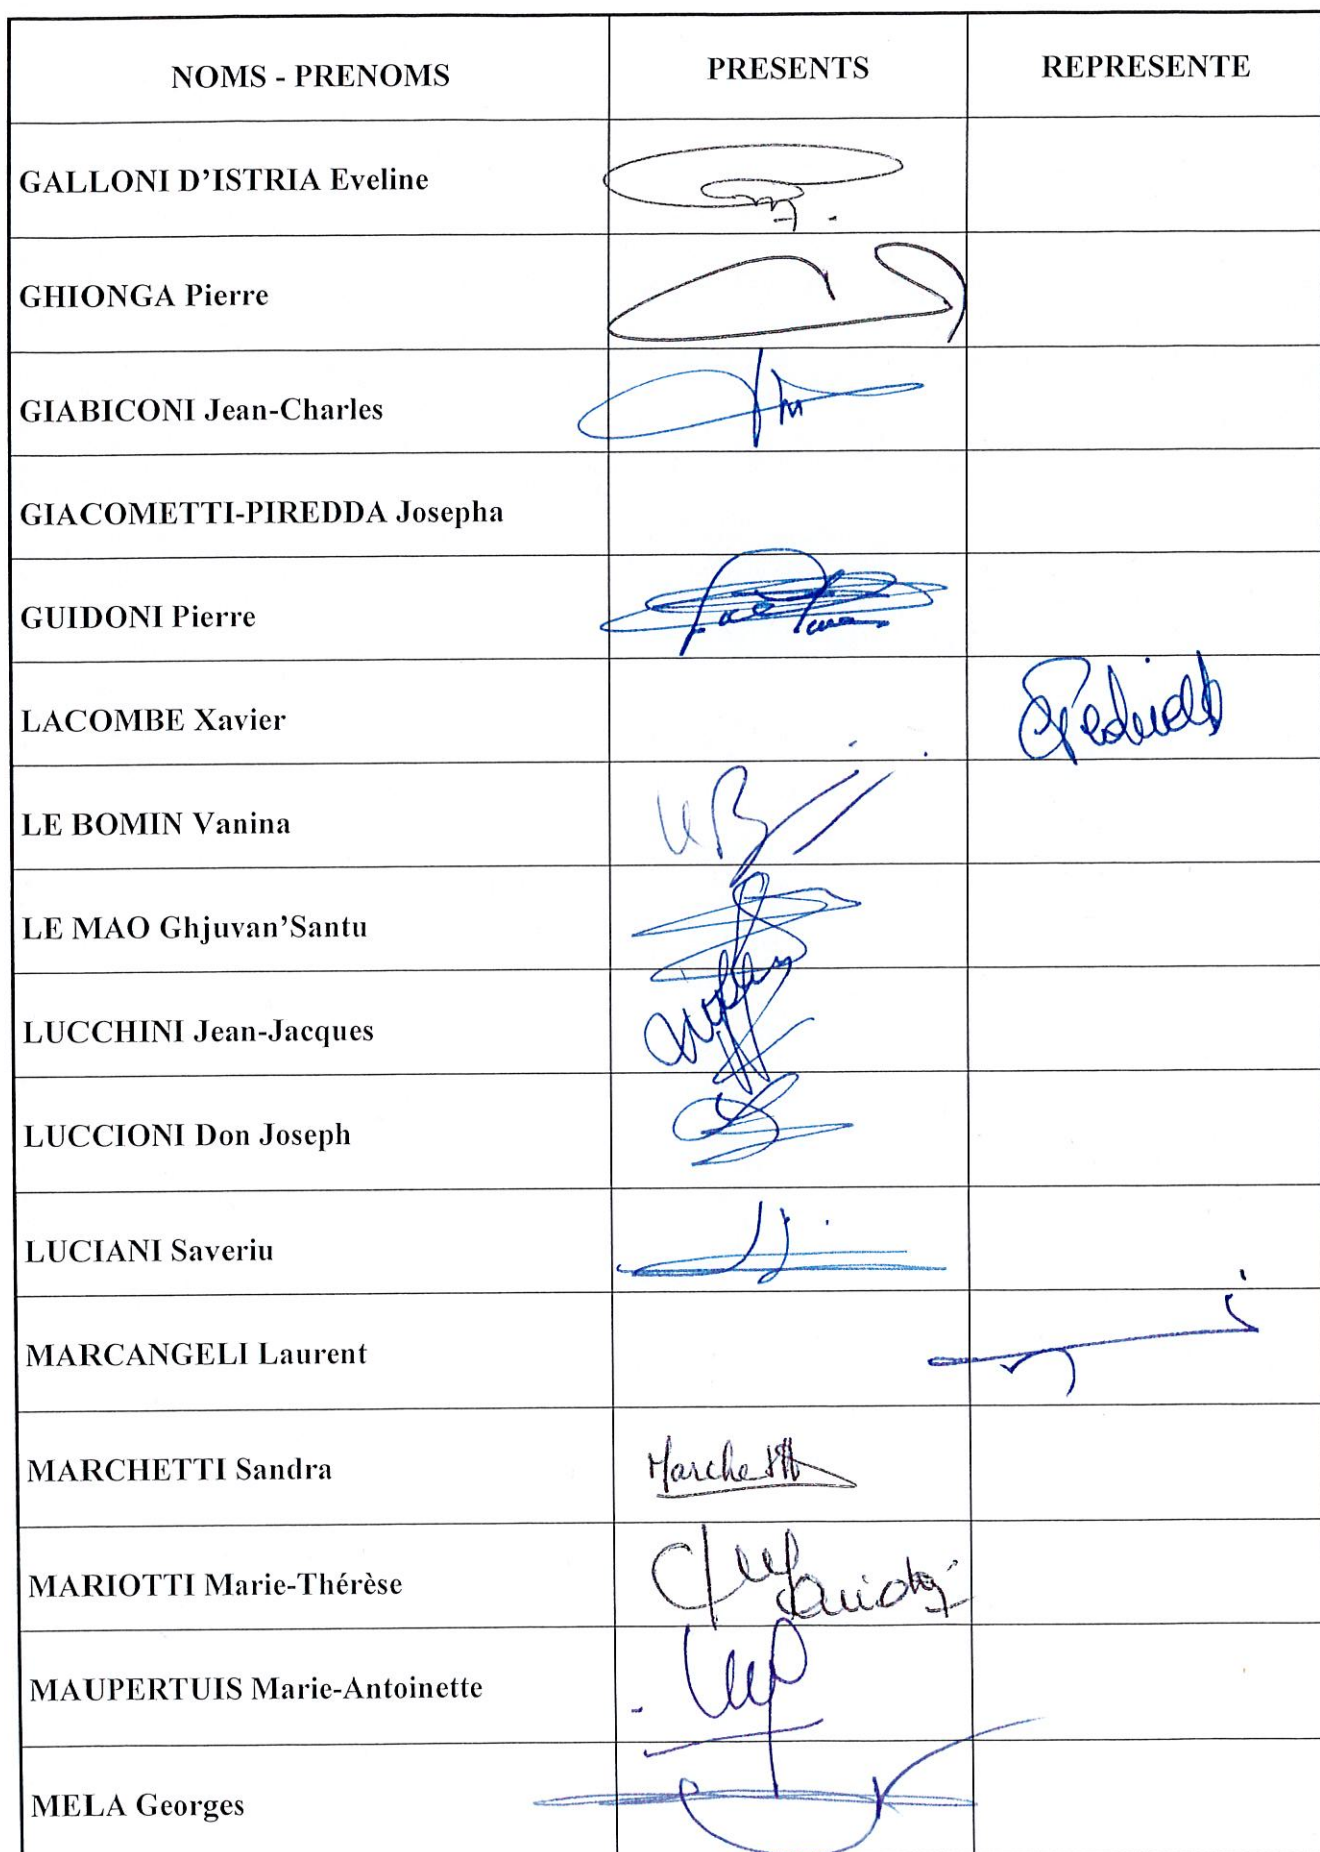 NOMS - PRENOMS PRESENTS REPRESENTE
GALLONI D'ISTRIA Eveline
GHIONGA Pierre
GIABICONI Jean-Charles
GIACOMETTI-PIREDDA Josepha
GUIDONI Pierre
LACOMBE Xavier
LE BOMIN Vanina
LE MAO Ghjuvan'Santu
LUCCHINI Jean-Jacques
LUCCIONI Don Joseph
LUCIANI Saveriu
MARCANGELI Laurent
MARCHETTI Sandra Marchetti
MARIOTTI Marie-Thérèse
MAUPERTUIS Marie-Antoinette
MELA Georges